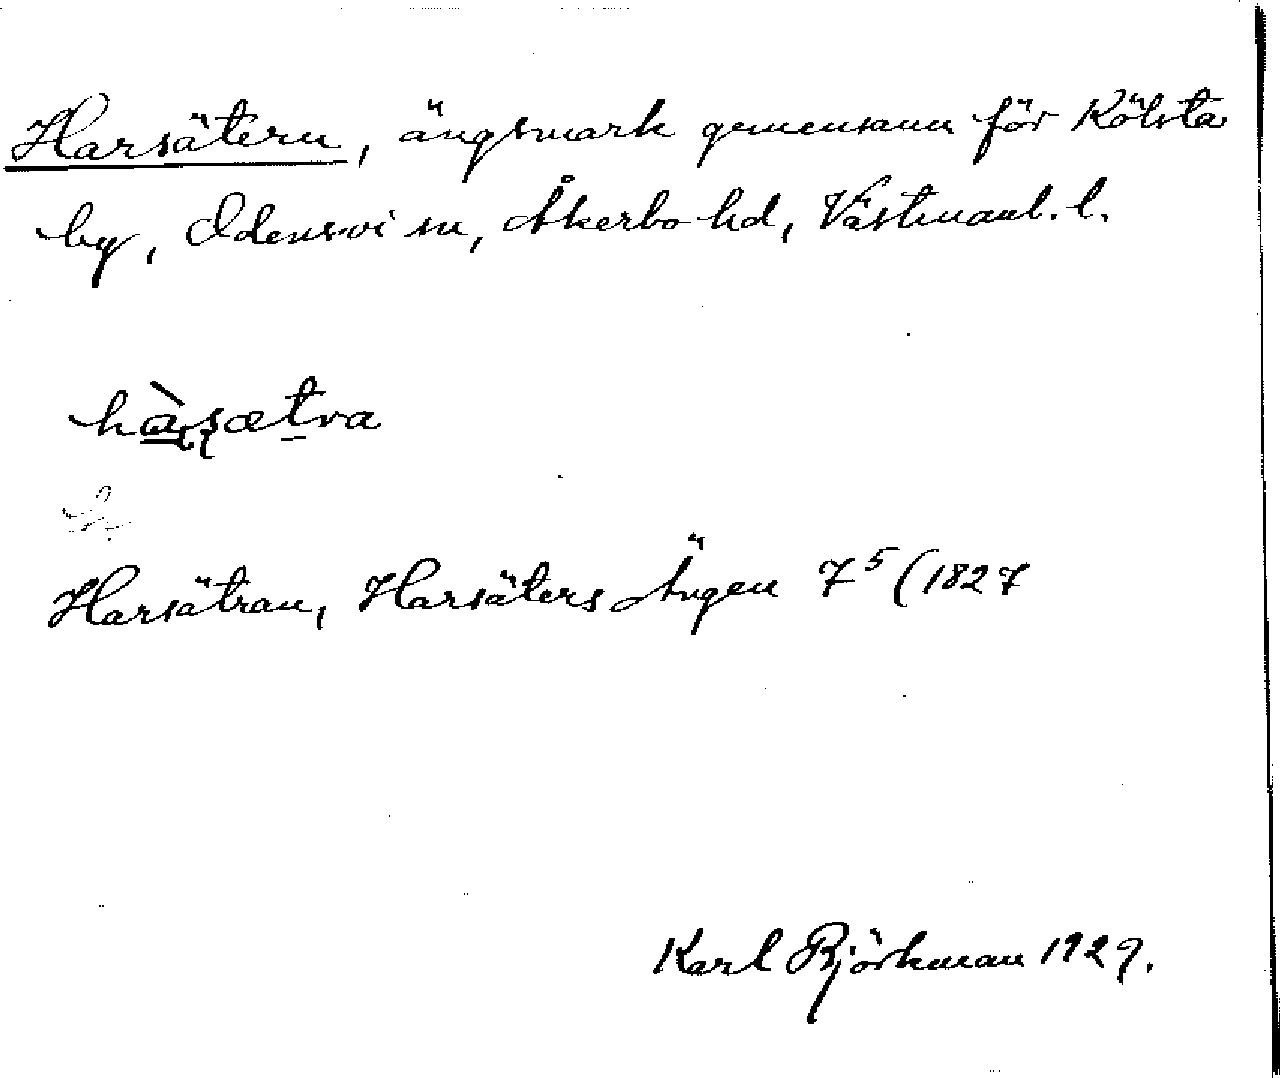 Harsätern, ängsmark gemensam för Kölsta
by, Odensvi sn, Åkerbo hd, Västmanl. l.
hàsætra
Harsätran, Harsäters Ängen 7⁵(1827
Karl Björkman 1929.